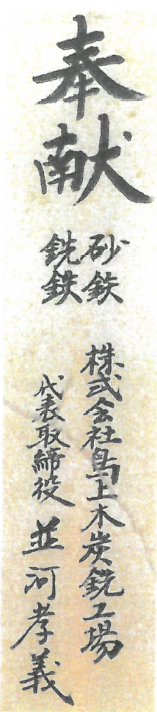 奉献
砂鉄
銑鉄
株式会社鳥上木炭銑工場
代表取締役 並河孝義